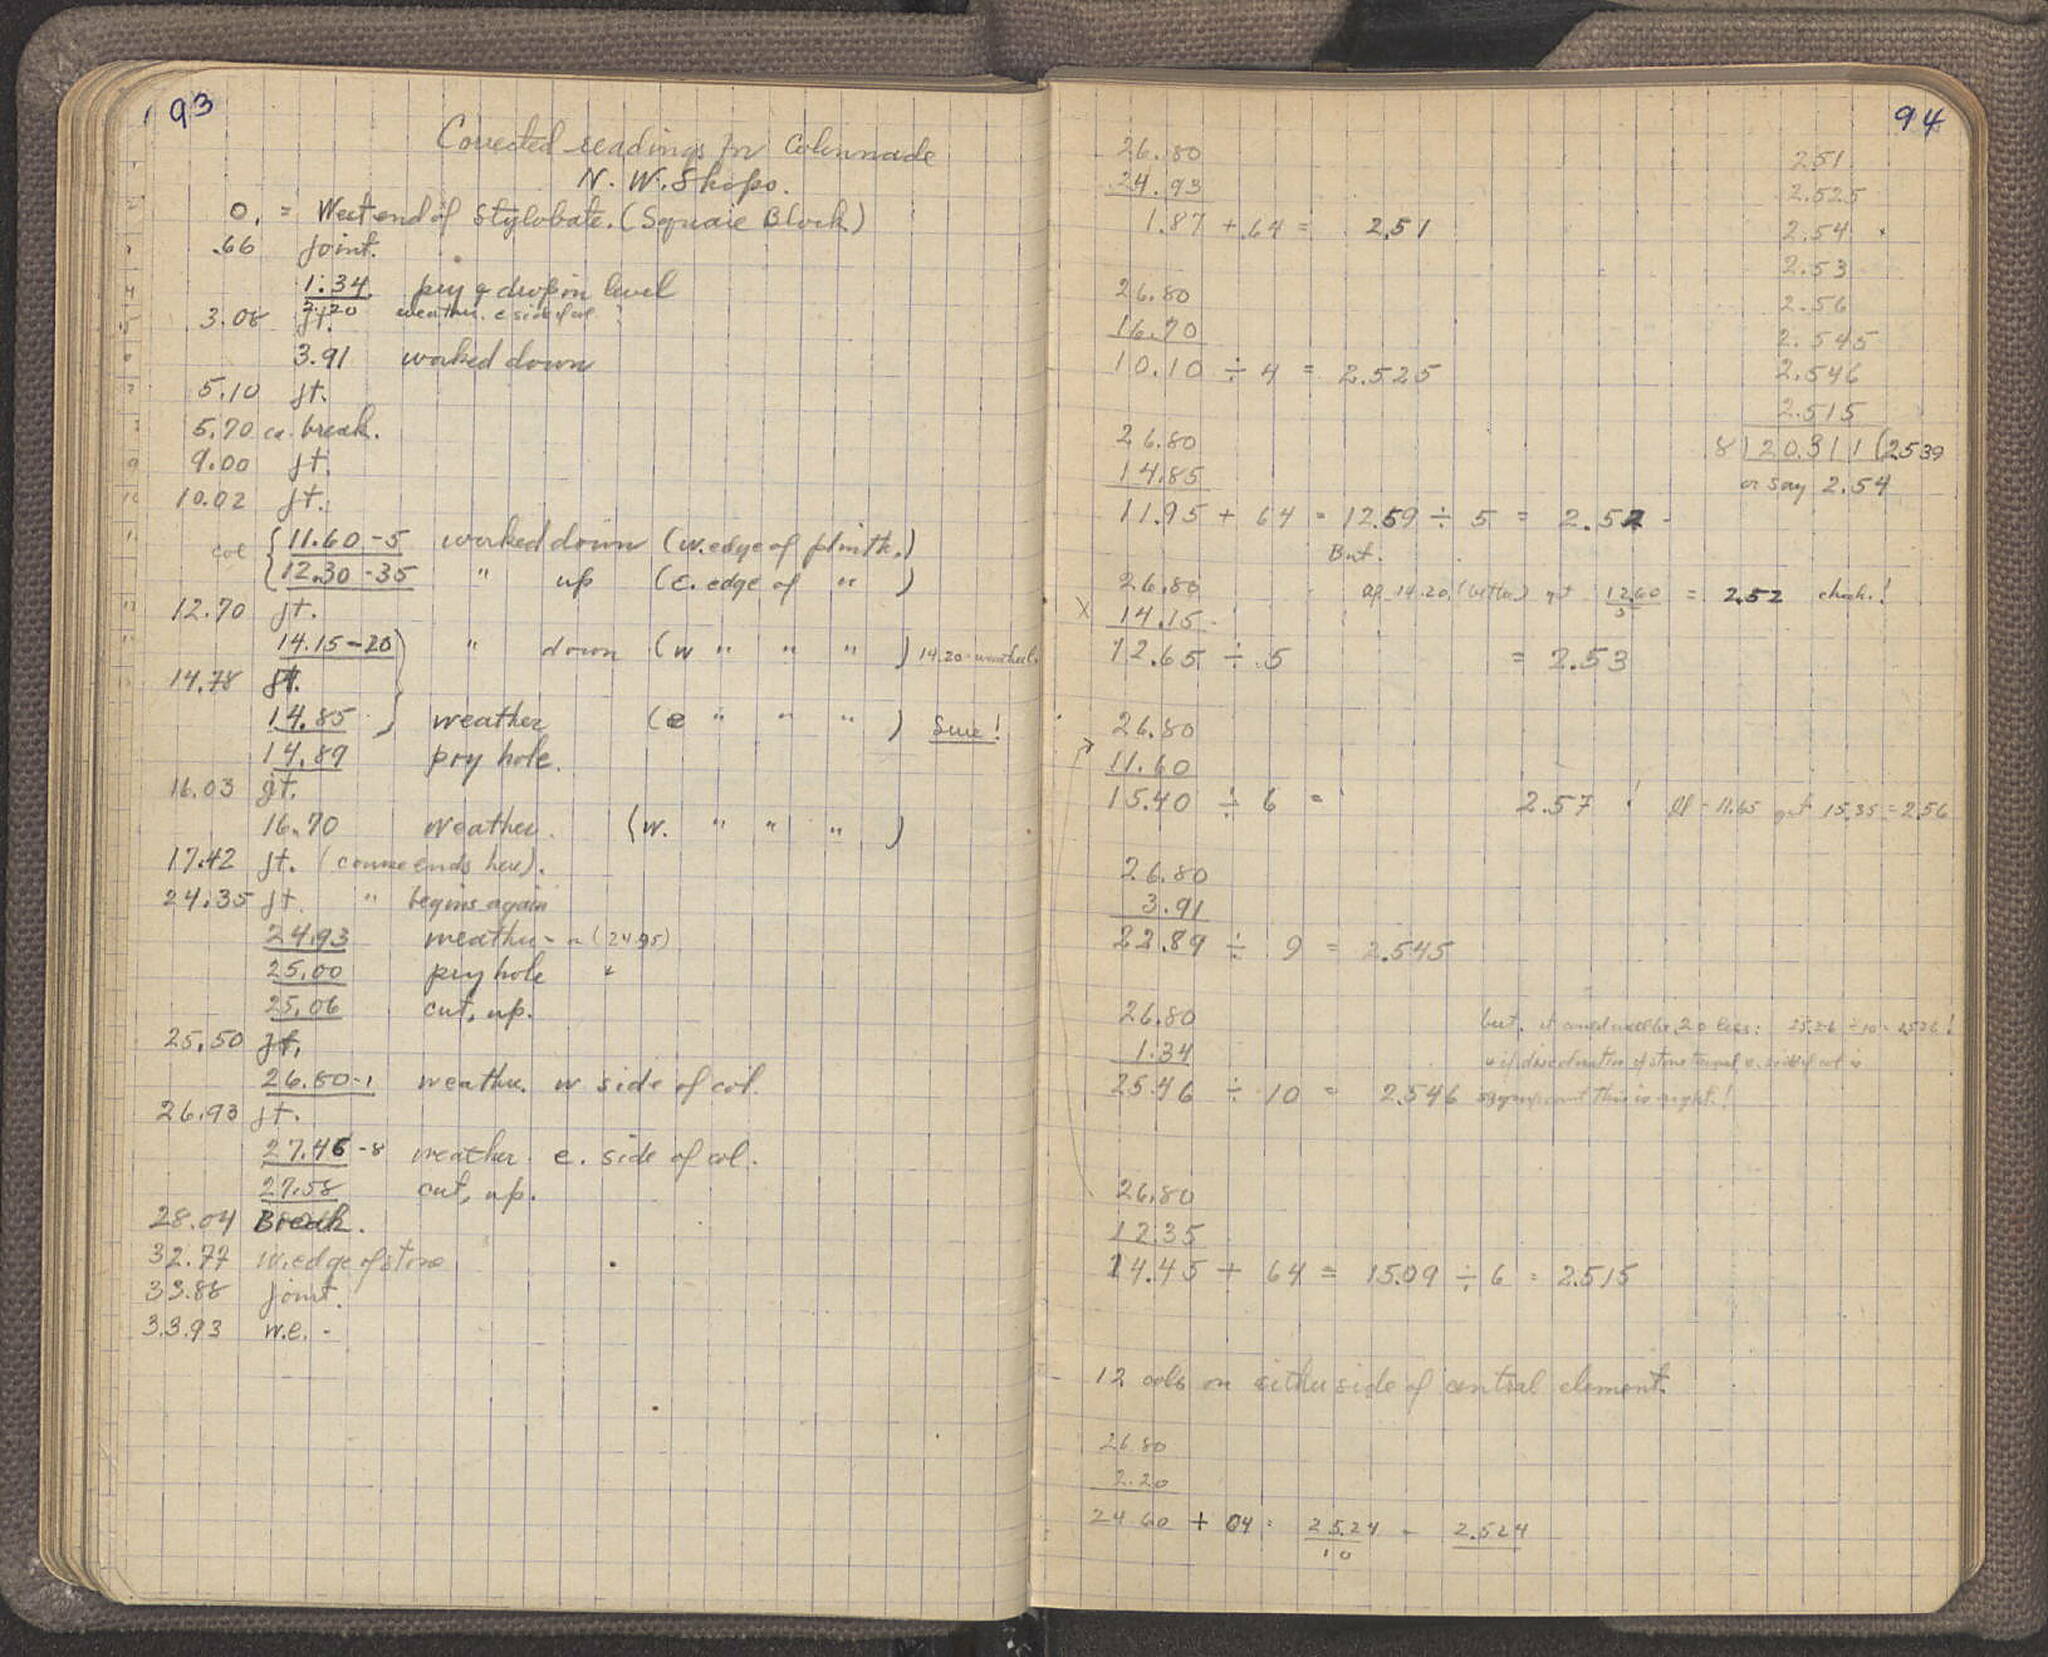 93
Corrected readings for Colonnade
N. W. Shops.
0. = West end of Stylobate. (Square Block)
.66 joint.
1.34 pry & drop in level
2.20 weather. e side of col
3.08 jt.
3.91 worked down
5.10 jt.
5.70 ca. break.
9.00 jt.
10.02 jt.
col { 11.60-5 worked down (w. edge of plinth.)
12.30-35 " up (E. edge of " )
12.70 jt.
14.15-20 " down (w " " " ) 14.20 weathered.
14.78 jt.
14.85 weather (e " " " ) Sure!
14.89 pry hole.
16.03 jt.
16.70 weather. (w. " " " )
17.42 jt. (course ends here).
24.35 jt. " begins again
24.93 weather - or (24.95)
25.00 pry hole "
25.06 cut, up.
25.50 jt.
26.80-1 weather. w side of col.
26.93 jt.
27.46-8 weather. e. side of col.
27.58 cut, up.
28.04 Break.
32.77 w. edge of stone
33.88 joint.
33.93 w.e. -
94
26.80
24.93
1.87 + .64 = 2.51
26.80
16.70
10.10 ÷ 4 = 2.525
26.80
14.85
11.95 + 64 = 12.59 ÷ 5 = 2.52 -
But.
26.80 if 14.20 (better) get 12.60 = 2.52 check.!
5
X 14.15
12.65 ÷ 5 = 2.53
26.80
11.60
15.40 ÷ 6 = 2.57 ! If - 11.65 get 15.35 = 2.56
26.80
3.91
22.89 ÷ 9 = 2.545
26.80
1.34
25.46 ÷ 10 = 2.546
but, it could well be .20 less: 25.26 ÷ 10 = 2.526!
& if discoloration of stone toward e. side of col is
significant this is right!
26.80
12.35
14.45 + 64 = 15.09 ÷ 6 = 2.515
12 cols on either side of central element.
26.80
2.20
24.60 + 64 = 25.24 - 2.524
10
2.51
2.525
2.54
2.53
2.56
2.545
2.546
2.515
8 ) 20.311 ( 2.539
or say 2.54